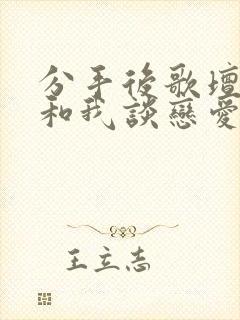 分手後歌壇
和我談戀愛
王立志